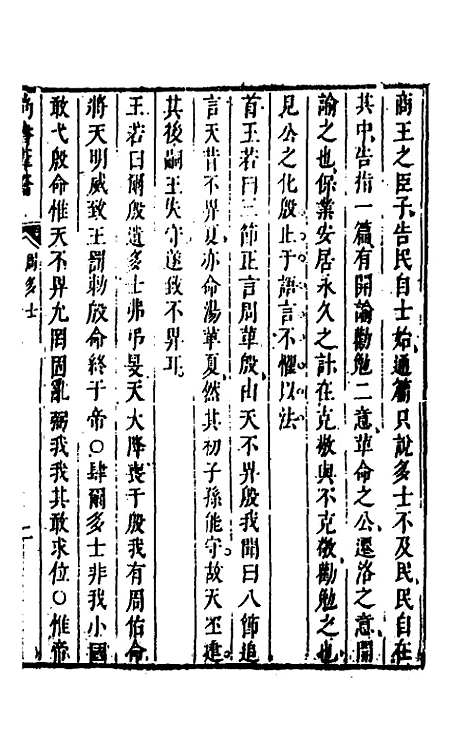 商王之臣子告民自士始通篇只說多士不及民民自在
其中告指一篇有開諭勸勉二意革命之公遷洛之意開
諭之也保業安居永久之計在克敬與不克敬勸勉之也
見公之化殷止于語言不懼以法
首王若曰三節正言周革殷由天不畀殷我聞曰八節追
言天昔不畀夏亦命湯革夏然其初子孫能守故天丕建
其後嗣王失守遂致不畀耳
王若曰爾殷遺多士弗弔旻天大降喪于殷我有周佑命
將天明威致王罰勅殷命終于帝○肆爾多士非我小國
敢弋殷命惟天不畀允罔固亂弼我我其敢求位○惟帝
尚書 周多士